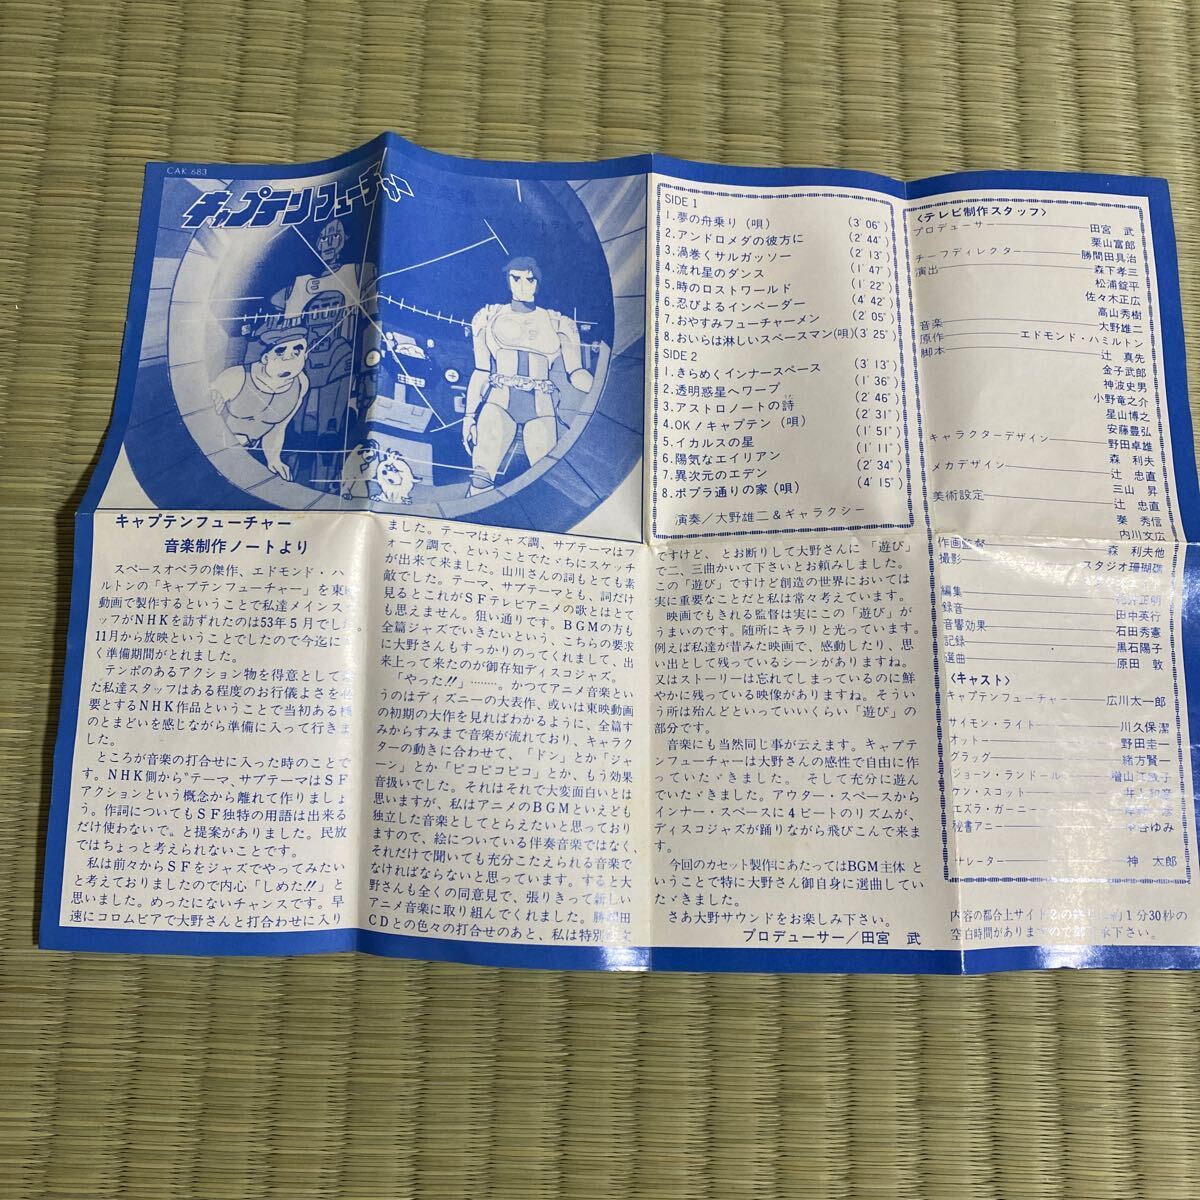 CAK 683
キャプテンフューチャー
SIDE 1
1.夢の舟乗り(唄) (3′06″)
2.アンドロメダの彼方に (2′44″)
3.渦巻くサルガッソー (2′13″)
4.流れ星のダンス (1′47″)
5.時のロストワールド (1′22″)
6.忍びよるインベーダー (4′42″)
7.おやすみフューチャーメン (2′05″)
8.おいらは淋しいスペースマン(唄)(3′25″)
SIDE 2
1.きらめくインナースペース (3′13″)
2.透明惑星へワープ (1′36″)
3.アストロノートの詩 (2′46″)
4.OK!キャプテン (唄) (2′31″)
5.イカルスの星 (1′51″)
6.陽気なエイリアン (1′11″)
7.異次元のエデン (2′34″)
8.ポプラ通りの家(唄) (4′15″)
演奏/大野雄二&ギャラクシー
<テレビ制作スタッフ>
プロデューサー 田宮 武
栗山富郎
チーフディレクター 勝間田具治
演出 森下孝三
松浦錠平
佐々木正広
高山秀樹
音楽 大野雄二
原作 エドモンド・ハミルトン
脚本 辻 真先
金子武郎
神波史男
小野竜之介
星山博之
安藤豊弘
キャラクターデザイン 野田卓雄
森 利夫
メカデザイン 辻 忠直
三山 昇
美術設定 辻 忠直
秦 秀信
内川文広
作画監督 森 利夫他
撮影 スタジオ珊瑚礁
編集 正明
録音 田中英行
音響効果 石田秀憲
記録 黒石陽子
選曲 原田 敦
<キャスト>
キャプテンフューチャー 広川太一郎
サイモン・ライト 川久保潔
オットー 野田圭一
グラッグ 緒方賢一
ジョーン・ランドール 増山江威子
ケン・スコット 井上和彦
エズラ・ガーニー
秘書アニー ゆみ
ナレーター 神 太郎
内容の都合上サイド2の 約1分30秒の
空白時間がありますので 下さい。
キャプテンフューチャー
音楽制作ノートより
スペースオペラの傑作、エドモンド・ハミ
ルトンの「キャプテンフューチャー」を東映
動画で製作するということで私達メインスタ
ッフがNHKを訪ずれたのは53年5月でした。
11月から放映ということでしたので今迄にな
く準備期間がとれました。
テンポのあるアクション物を得意として来
た私達スタッフはある程度のお行儀よさを必
要とするNHK作品ということで当初ある種
のとまどいを感じながら準備に入って行きま
した。
ところが音楽の打合せに入った時のことで
す。NHK側から〝テーマ、サブテーマはSF
アクションという概念から離れて作りましょ
う。作詞についてもSF独特の用語は出来る
だけ使わないで〟と提案がありました。民放
ではちょっと考えられないことです。
私は前々からSFをジャズでやってみたい
と考えておりましたので内心「しめた!!」と
思いました。めったにないチャンスです。早
速にコロムビアで大野さんと打合わせに入り
ました。テーマはジャズ調、サブテーマはフ
ォーク調で、ということでたゞちにスケッチ
が出来て来ました。山川さんの詞もとても素
敵でした。テーマ、サブテーマとも、詞だけ
見るとこれがSFテレビアニメの歌とはとて
も思えません。狙い通りです。BGMの方も
全篇ジャズでいきたいという、こちらの要求
に大野さんもすっかりのってくれまして、出
来上って来たのが御存知ディスコジャズ。
「やった!!」………。かつてアニメ音楽とい
うのはディズニーの大表作、或いは東映動画
の初期の大作を見ればわかるように、全篇す
みからすみまで音楽が流れており、キャラク
ターの動きに合わせて、「ドン」とか「ジャ
ーン」とか「ピコピコピコ」とか、もう効果
音扱いでした。それはそれで大変面白いとは
思いますが、私はアニメのBGMといえども
独立した音楽としてとらえたいと思っており
ますので、絵についている伴奏音楽ではなく、
それだけで聞いても充分こたえられる音楽で
なければならないと思っています。すると大
野さんも全くの同意見で、張りきって新しい
アニメ音楽に取り組んでくれました。勝間田
CDとの色々の打合せのあと、私は特別注文
ですけど、とお断りして大野さんに「遊び」
で二、三曲かいて下さいとお頼みしました。
この「遊び」ですけど創造の世界においては
実に重要なことだと私は常々考えています。
映画でもきれる監督は実にこの「遊び」が
うまいのです。随所にキラリと光っています。
例えば私達が昔みた映画で、感動したり、思
い出として残っているシーンがありますね。
又はストーリーは忘れてしまっているのに鮮
やかに残っている映像がありますね。そうい
う所は殆んどといっていいくらい「遊び」の
部分です。
音楽にも当然同じ事が云えます。キャプテ
ンフューチャーは大野さんの感性で自由に作
っていたゞきました。そして充分に遊ん
でいたゞきました。アウター・スペースから
インナー・スペースに4ビートのリズムが、
ディスコジャズが踊りながら飛びこんで来ま
す。
今回のカセット製作にあたってはBGM主体と
いうことで特に大野さん御自身に選曲してい
たゞきました。
さあ大野サウンドをお楽しみ下さい。
プロデューサー/田宮 武